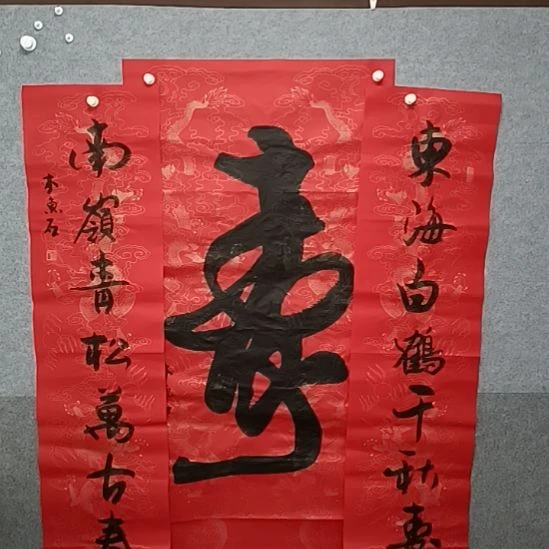 東海白鶴千秋壽
壽
南嶺青松萬古春
木魚石